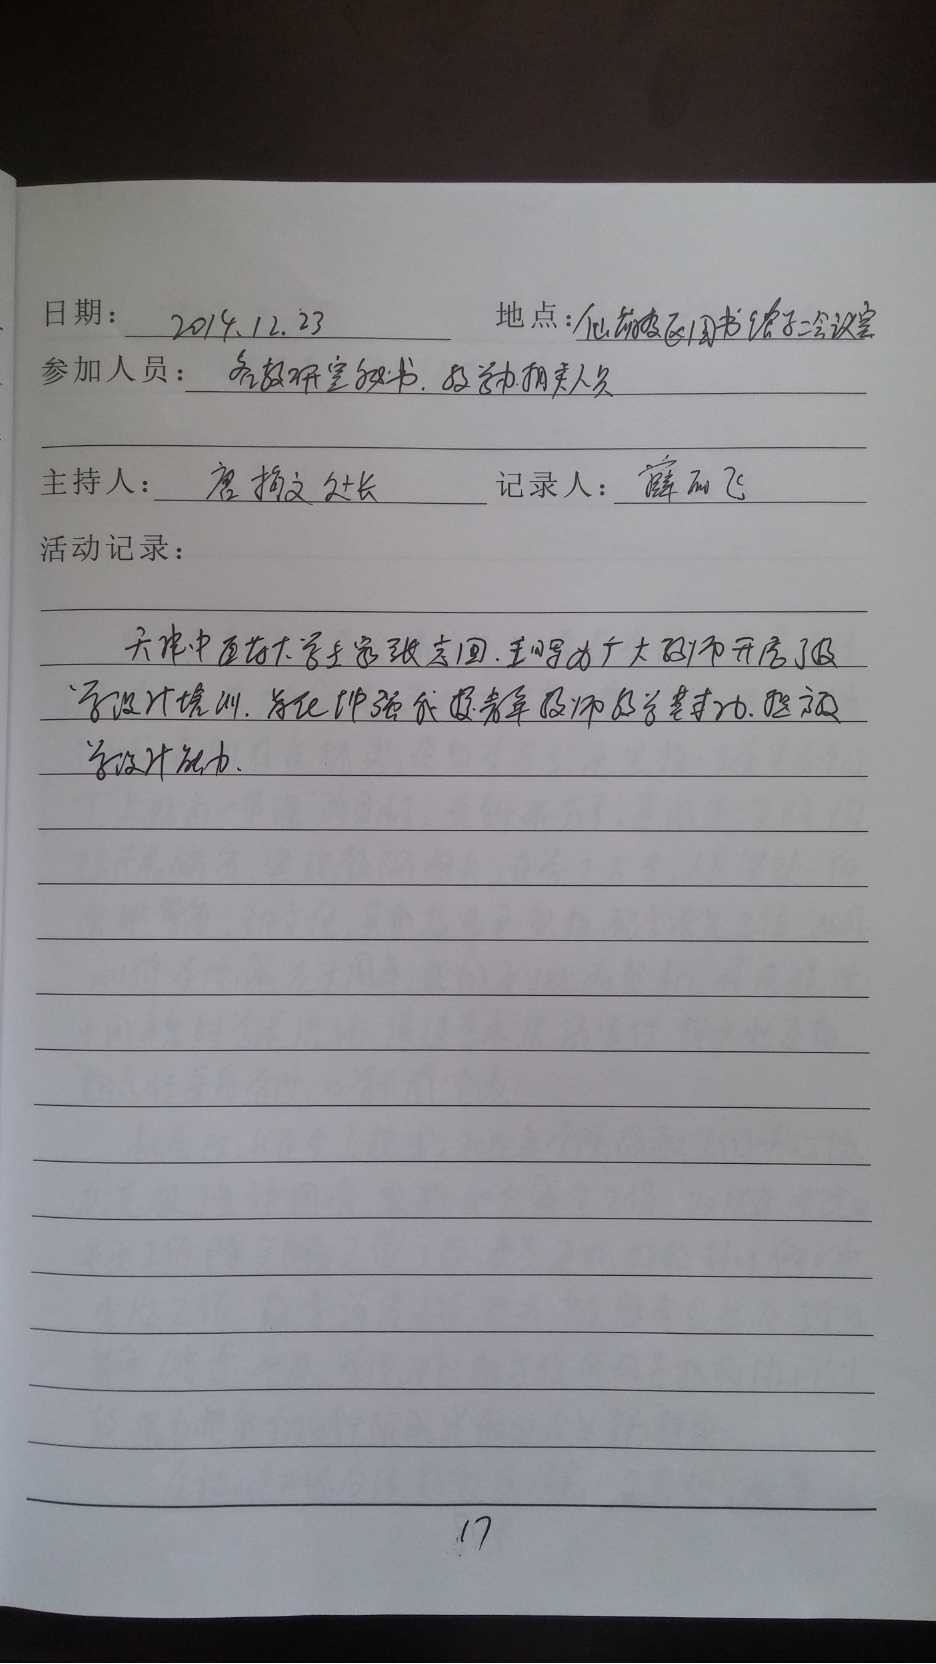 日期： 2014.12.23 地点：仙林校区图书馆第二会议室
参加人员：各教研室秘书.教学办相关人员
主持人： 唐 处长 记录人： 薛 飞
活动记录：
天津中医药大学专家张志国. 为广大教师开展了教
学设计培训. 旨在加强我校青年教师教学基本功. 提高教
学设计能力.
17